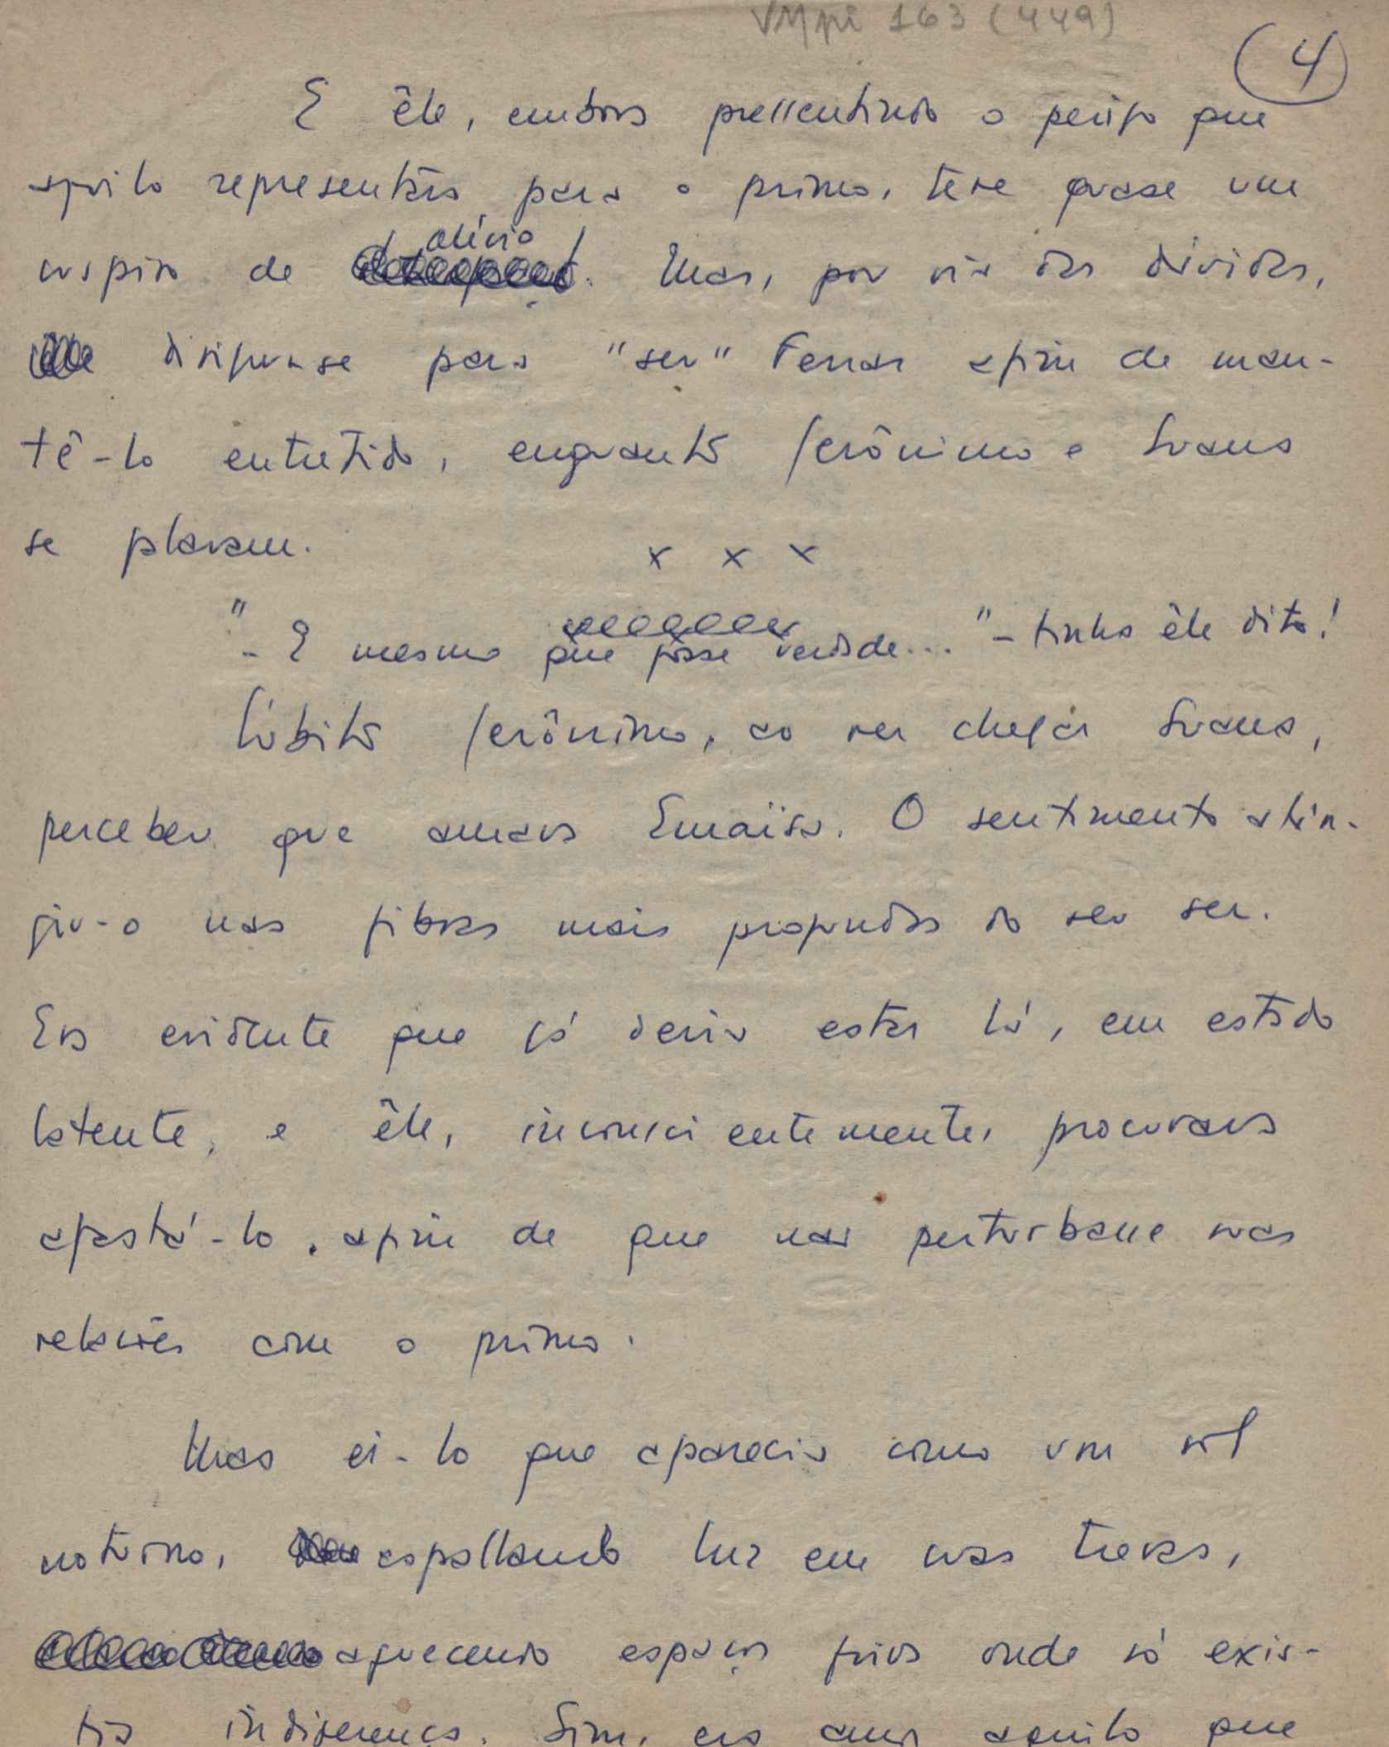 VMpi 163 (449)
(4)
E êle, embora pressentindo o perigo que
aquilo representava para o primo, teve quase um
suspiro de alívio! Mas, por via das dúvidas,
dirigiu-se para "seu" Ferraz afim de man-
tê-lo entretido, enquanto Jerônimo e Suana
se falavam.
x x x
"- E mesmo que fosse verdade..." - tinha êle dito!
Súbito Jerônimo, ao ver chegar Suana,
percebeu que amava Emaísa. O sentimento atin-
giu-o nas fibras mais profundas do seu ser.
Era evidente que já devia estar lá, em estado
latente, e êle, inconscientemente, procurava
afastá-lo, afim de que não perturbasse suas
relações com o primo.
Mas ei-lo que aparecia como um sol
noturno, espalhando luz em suas trevas,
aquecendo espaços frios onde só exis-
tia indiferença. Sim, era amor aquilo que